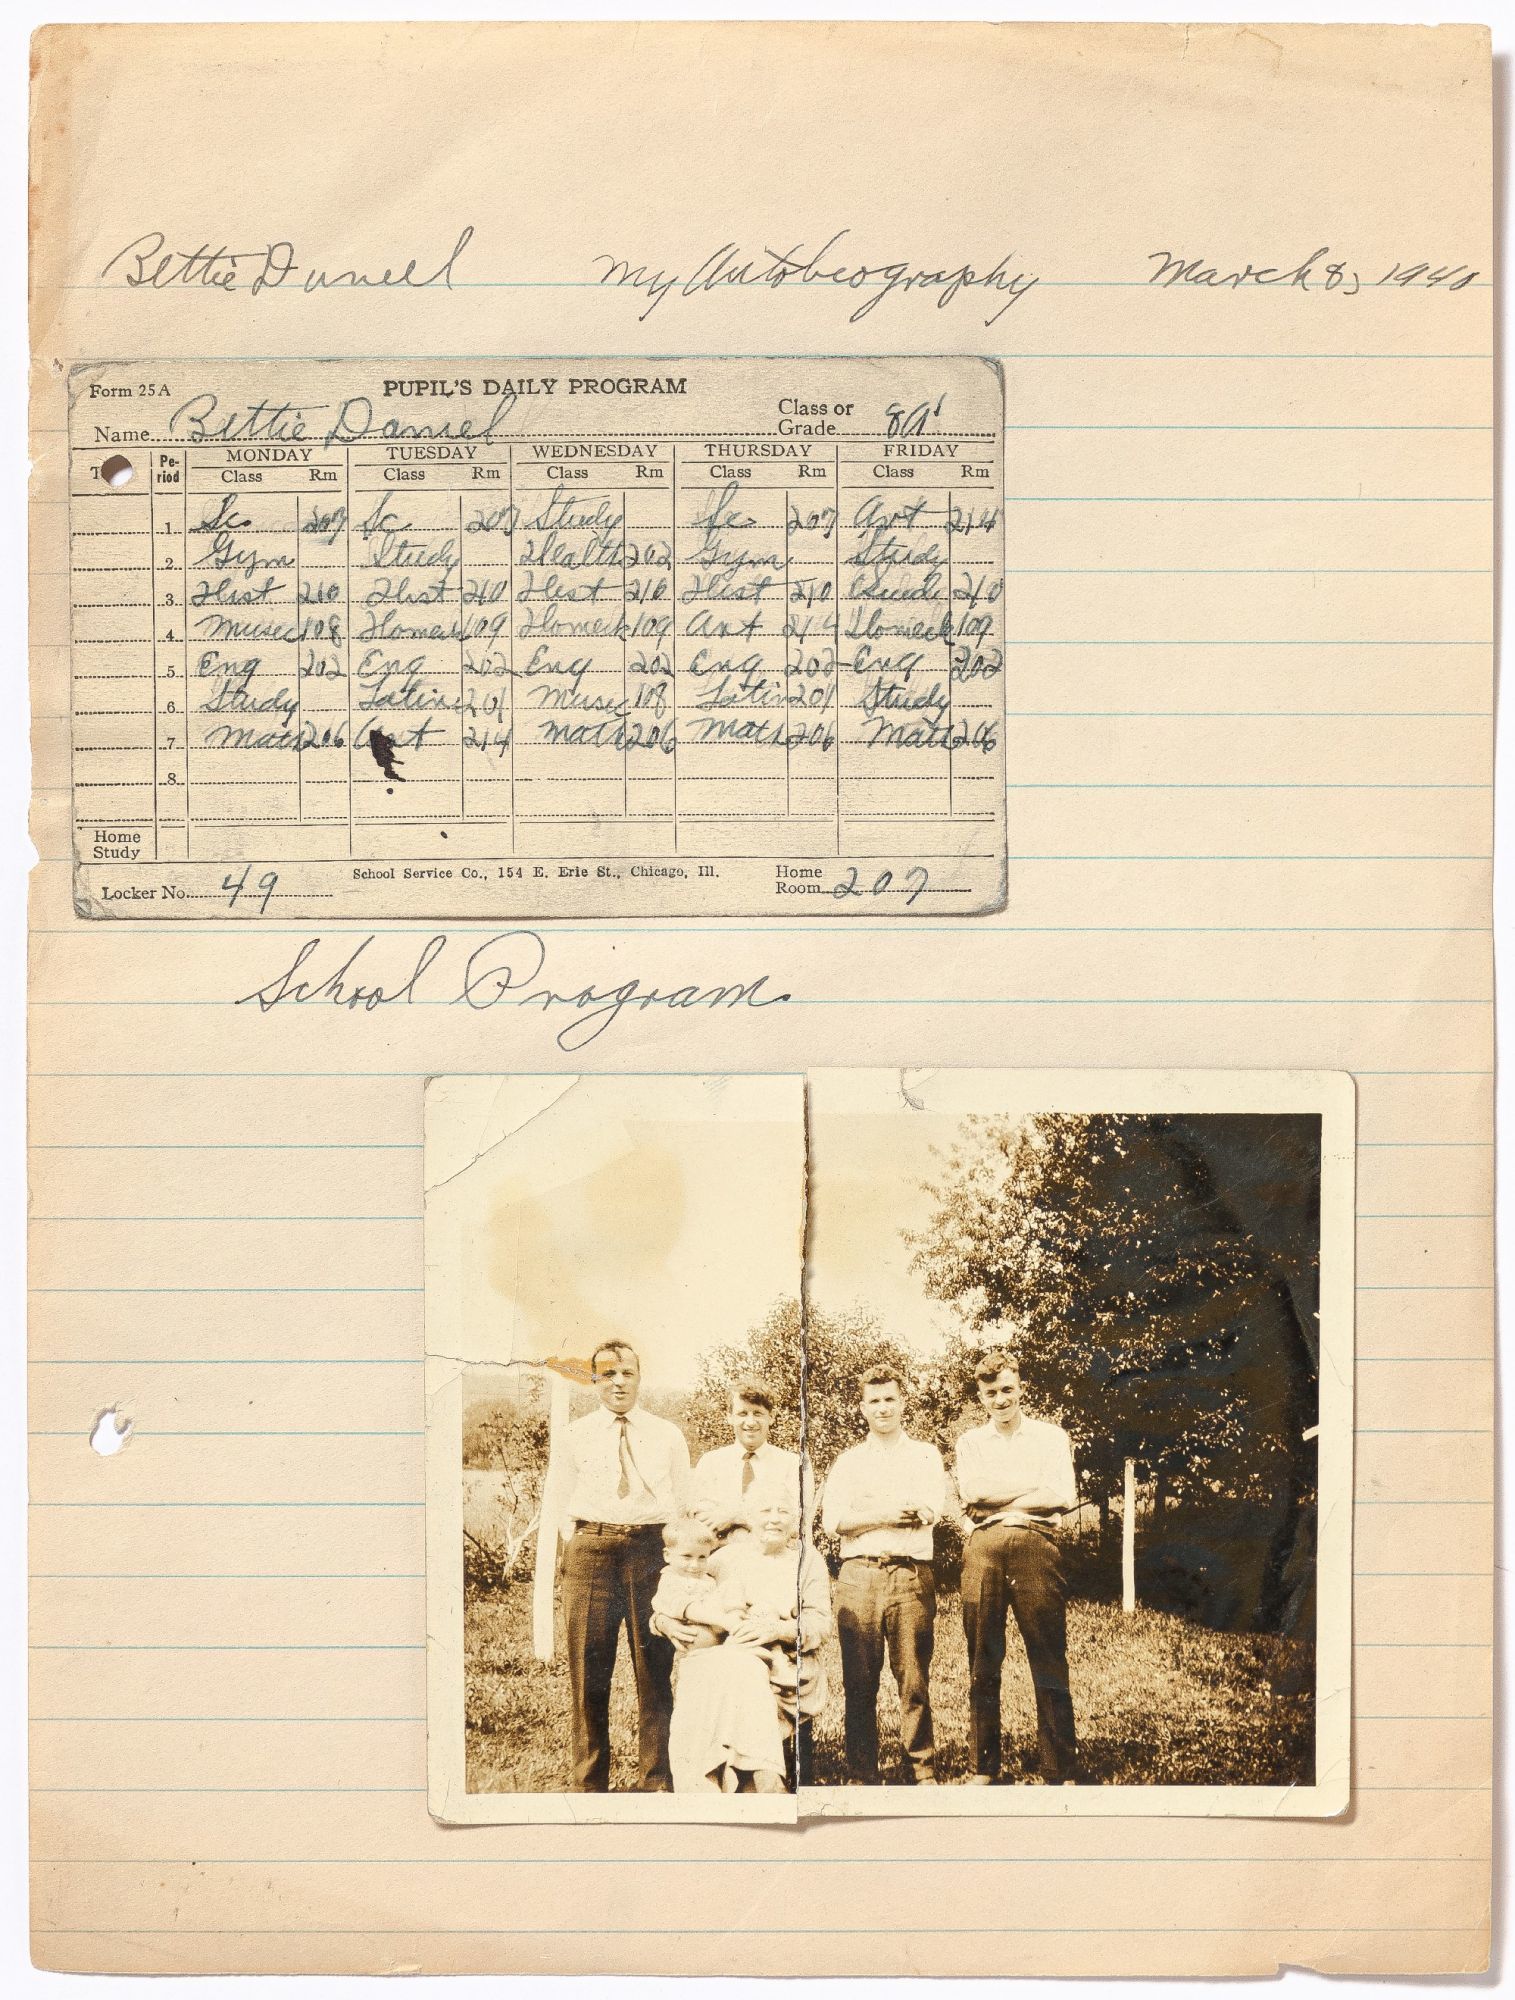 Bettie Daniel My Autobeography March 8, 1940
Form 25A PUPIL'S DAILY PROGRAM
Name Bettie Daniel Class or Grade 8A'
Period MONDAY TUESDAY WEDNESDAY THURSDAY FRIDAY
Class Rm Class Rm Class Rm Class Rm Class Rm
1 Sc 207 Sc 207 Study Sc 207 Art 214
2 Gym Study Health 202 Gym Study
3 Hist 210 Hist 210 Hist 210 Hist 210 210
4 Music 108 Homeck 109 Homeck 109 Art 214 Homeck 109
5 Eng 202 Eng 202 Eng 202 Eng 202 Eng 202
6 Study Latin 201 Music 108 Latin 201 Study
7 Math 206 Art 214 Math 206 Math 206 Math 206
8
Home Study
Locker No. 49 School Service Co., 154 E. Erie St., Chicago, Ill. Home Room 207
School Program